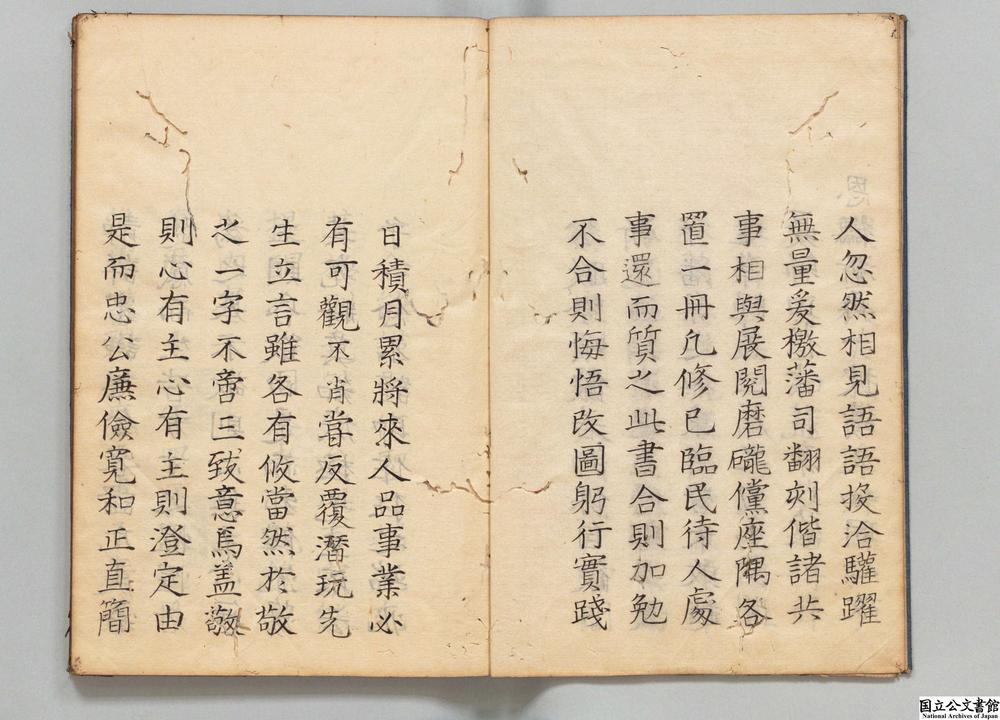 人忽然相見語語投洽驩躍
無量爰檄藩司翻刻偕諸共
事相與展閱磨礲儻座隅各
置一冊凡修已臨民待人處
事還而質之此書合則加勉
不合則悔悟改圖躬行實踐
日積月累將來人品事業必
有可觀不肖嘗反覆潛玩先
生立言雖各有攸當然於敬
之一字不啻三致意焉盖敬
則心有主心有主則澄定由
是而忠公廉儉寬和正直簡
国立公文書館
National Archives of Japan